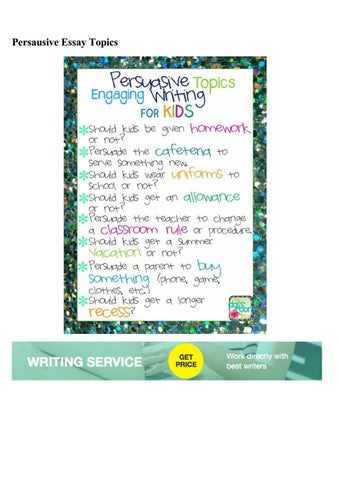 Persausive Essay Topics
Persuasive Topics
Engaging Writing
FOR KIDS
Should kids be given homework
or not?
Persuade the cafeteria to
serve something new.
Should kids wear uniforms to
school or not?
Should kids get an allowance
or not?
Persuade the teacher to change
a classroom rule or procedure.
Should kids get a summer
vacation or not?
Persuade a parent to buy
something (phone, game,
clothes, etc.)
Should kids get a longer
recess?
WRITING SERVICE
GET
PRICE
Work directly with
best writers